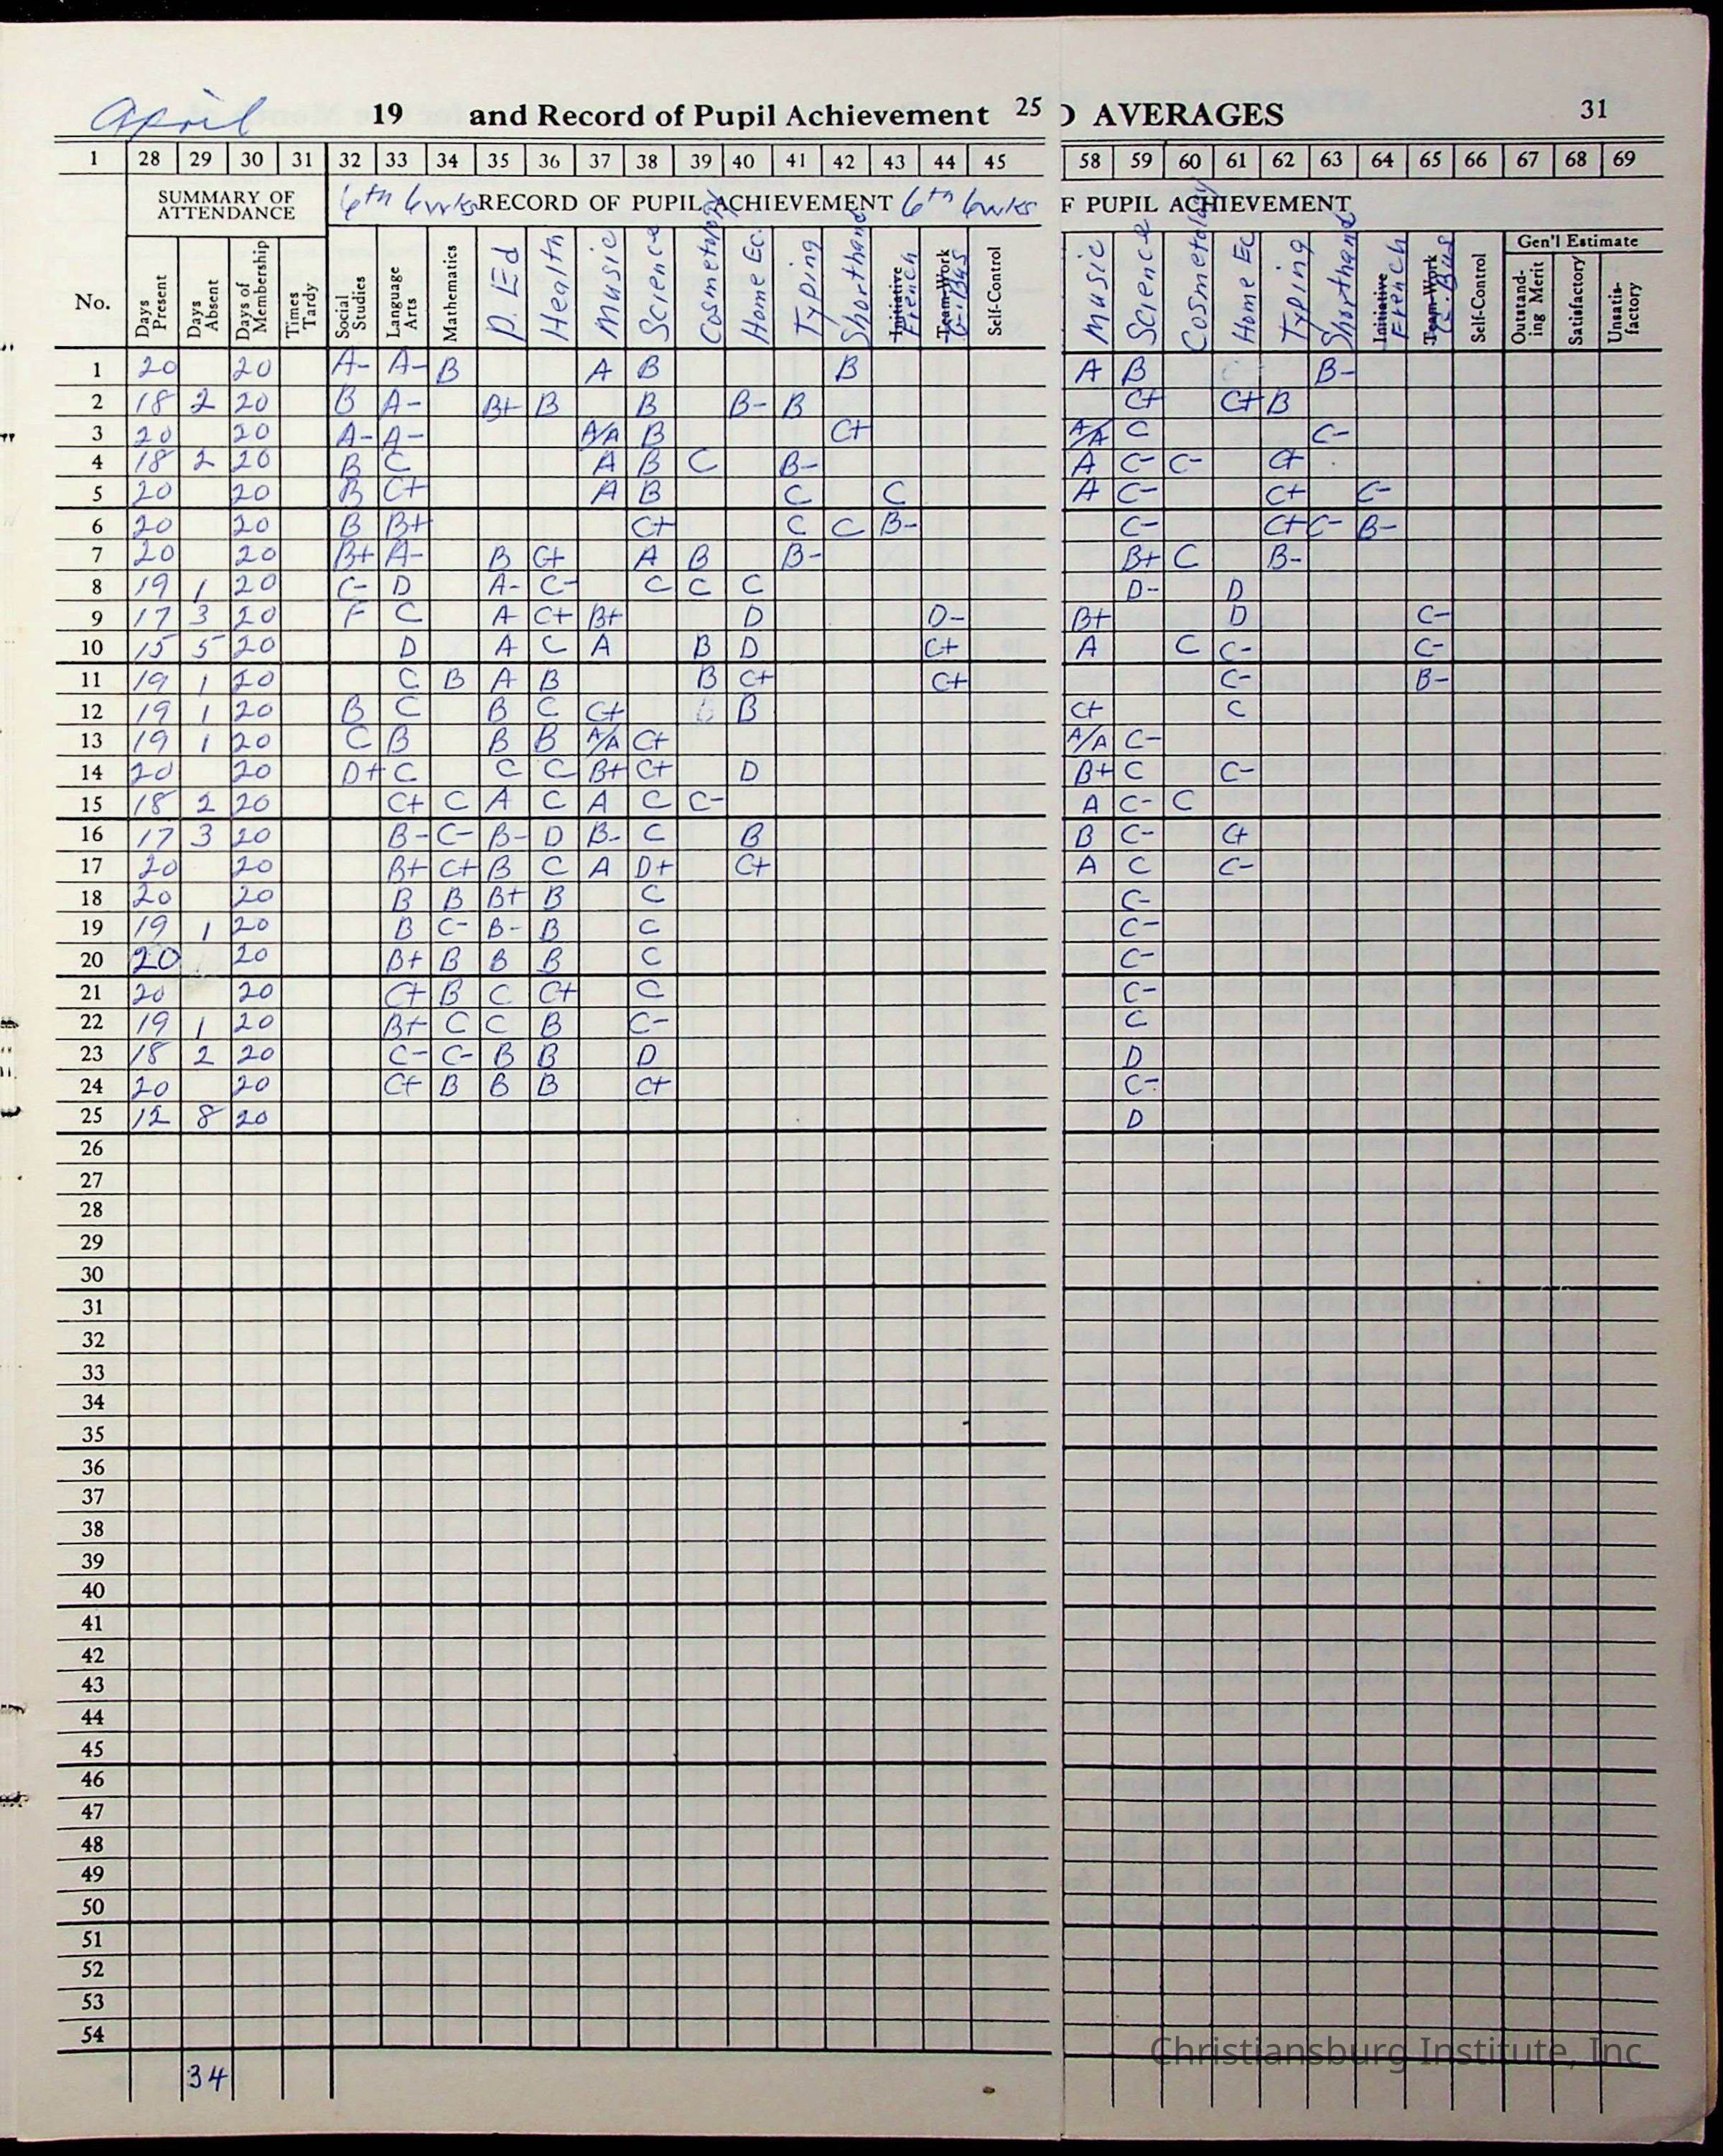 April 19 and Record of Pupil Achievement 25 D AVERAGES 31
1 28 29 30 31 32 33 34 35 36 37 38 39 40 41 42 43 44 45 58 59 60 61 62 63 64 65 66 67 68 69
SUMMARY OF ATTENDANCE 6th 6wks RECORD OF PUPIL ACHIEVEMENT 6th 6wks F PUPIL ACHIEVEMENT
Gen'l Estimate
No. Days Present Days Absent Days of Membership Times Tardy Social Studies Language Arts Mathematics P. Ed Health Music Science Cosmetology Home Ec. Typing Shorthand Initiative French Team-Work G-Bus Self-Control Music Science Cosmetology Home Ec Typing Shorthand Initiative French Team-Work G. Bus Self-Control Outstanding Merit Satisfactory Unsatisfactory
1 20 20 A- A- B A B B A B B-
2 18 2 20 B A- B+ B B B- B C+ C+ B
3 20 20 A- A- A/A B C+ A/A C C-
4 18 2 20 B C A B C B- A C- C- C+
5 20 20 B C+ A B C C A C- C+ C-
6 20 20 B B+ C+ C C B- C- C+ C- B-
7 20 20 B+ A- B C+ A B B- B+ C B-
8 19 1 20 C- D A- C- C C C D- D
9 17 3 20 F C A C+ B+ D D- B+ D C-
10 15 5 20 D A C A B D C+ A C C- C-
11 19 1 20 C B A B B C+ C+ C- B-
12 19 1 20 B C B C C+ B C+ C
13 19 1 20 C B B B A/A C+ A/A C-
14 20 20 D+ C C C B+ C+ D B+ C C-
15 18 2 20 C+ C A C A C C- A C- C
16 17 3 20 B- C- B- D B- C B B C- C+
17 20 20 B+ C+ B C A D+ C+ A C C-
18 20 20 B B B+ B C C-
19 19 1 20 B C- B- B C C-
20 20 20 B+ B B B C C-
21 20 20 C+ B C C+ C C-
22 19 1 20 B+ C C B C- C
23 18 2 20 C- C- B B D D
24 20 20 C+ B B B C+ C-
25 12 8 20 D
26
27
28
29
30
31
32
33
34
35
36
37
38
39
40
41
42
43
44
45
46
47
48
49
50
51
52
53
54
34
Christiansburg Institute, Inc